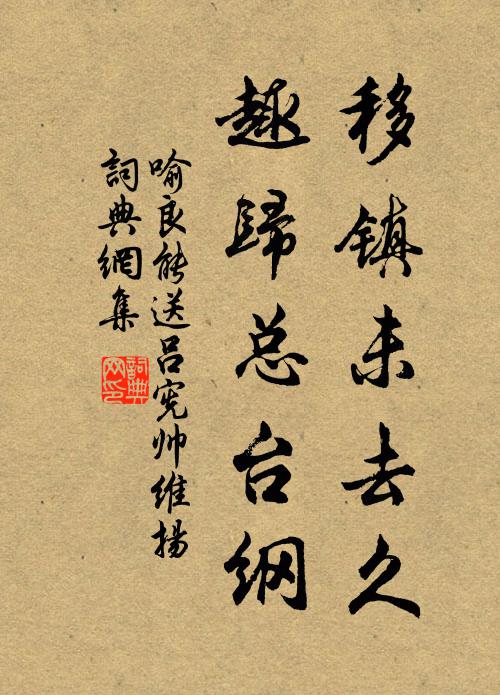 移镇未去久
趣歸总台纲
喻良能送吕宪帅维揚
詞典網集
詞典网印